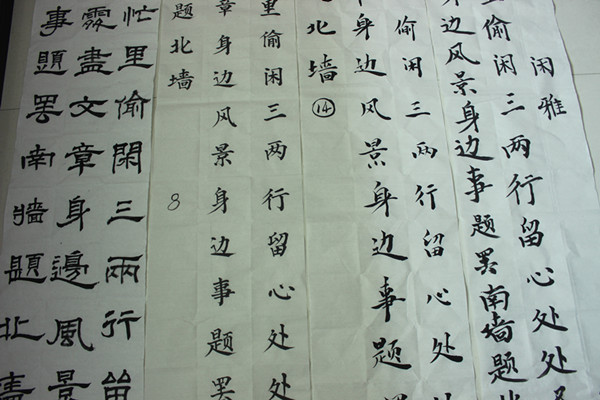 闲雅
偷闲三两行留心处处
边风景身边事题罢南墙题
偷闲三两行留心处
身边风景身边事题
北墙⑭
里偷闲三两行留心处处
章身边风景身边事题罢
题北墙
8
忙里偷閑三兩行留
處盡文章身邊風景
事題罢南牆題北